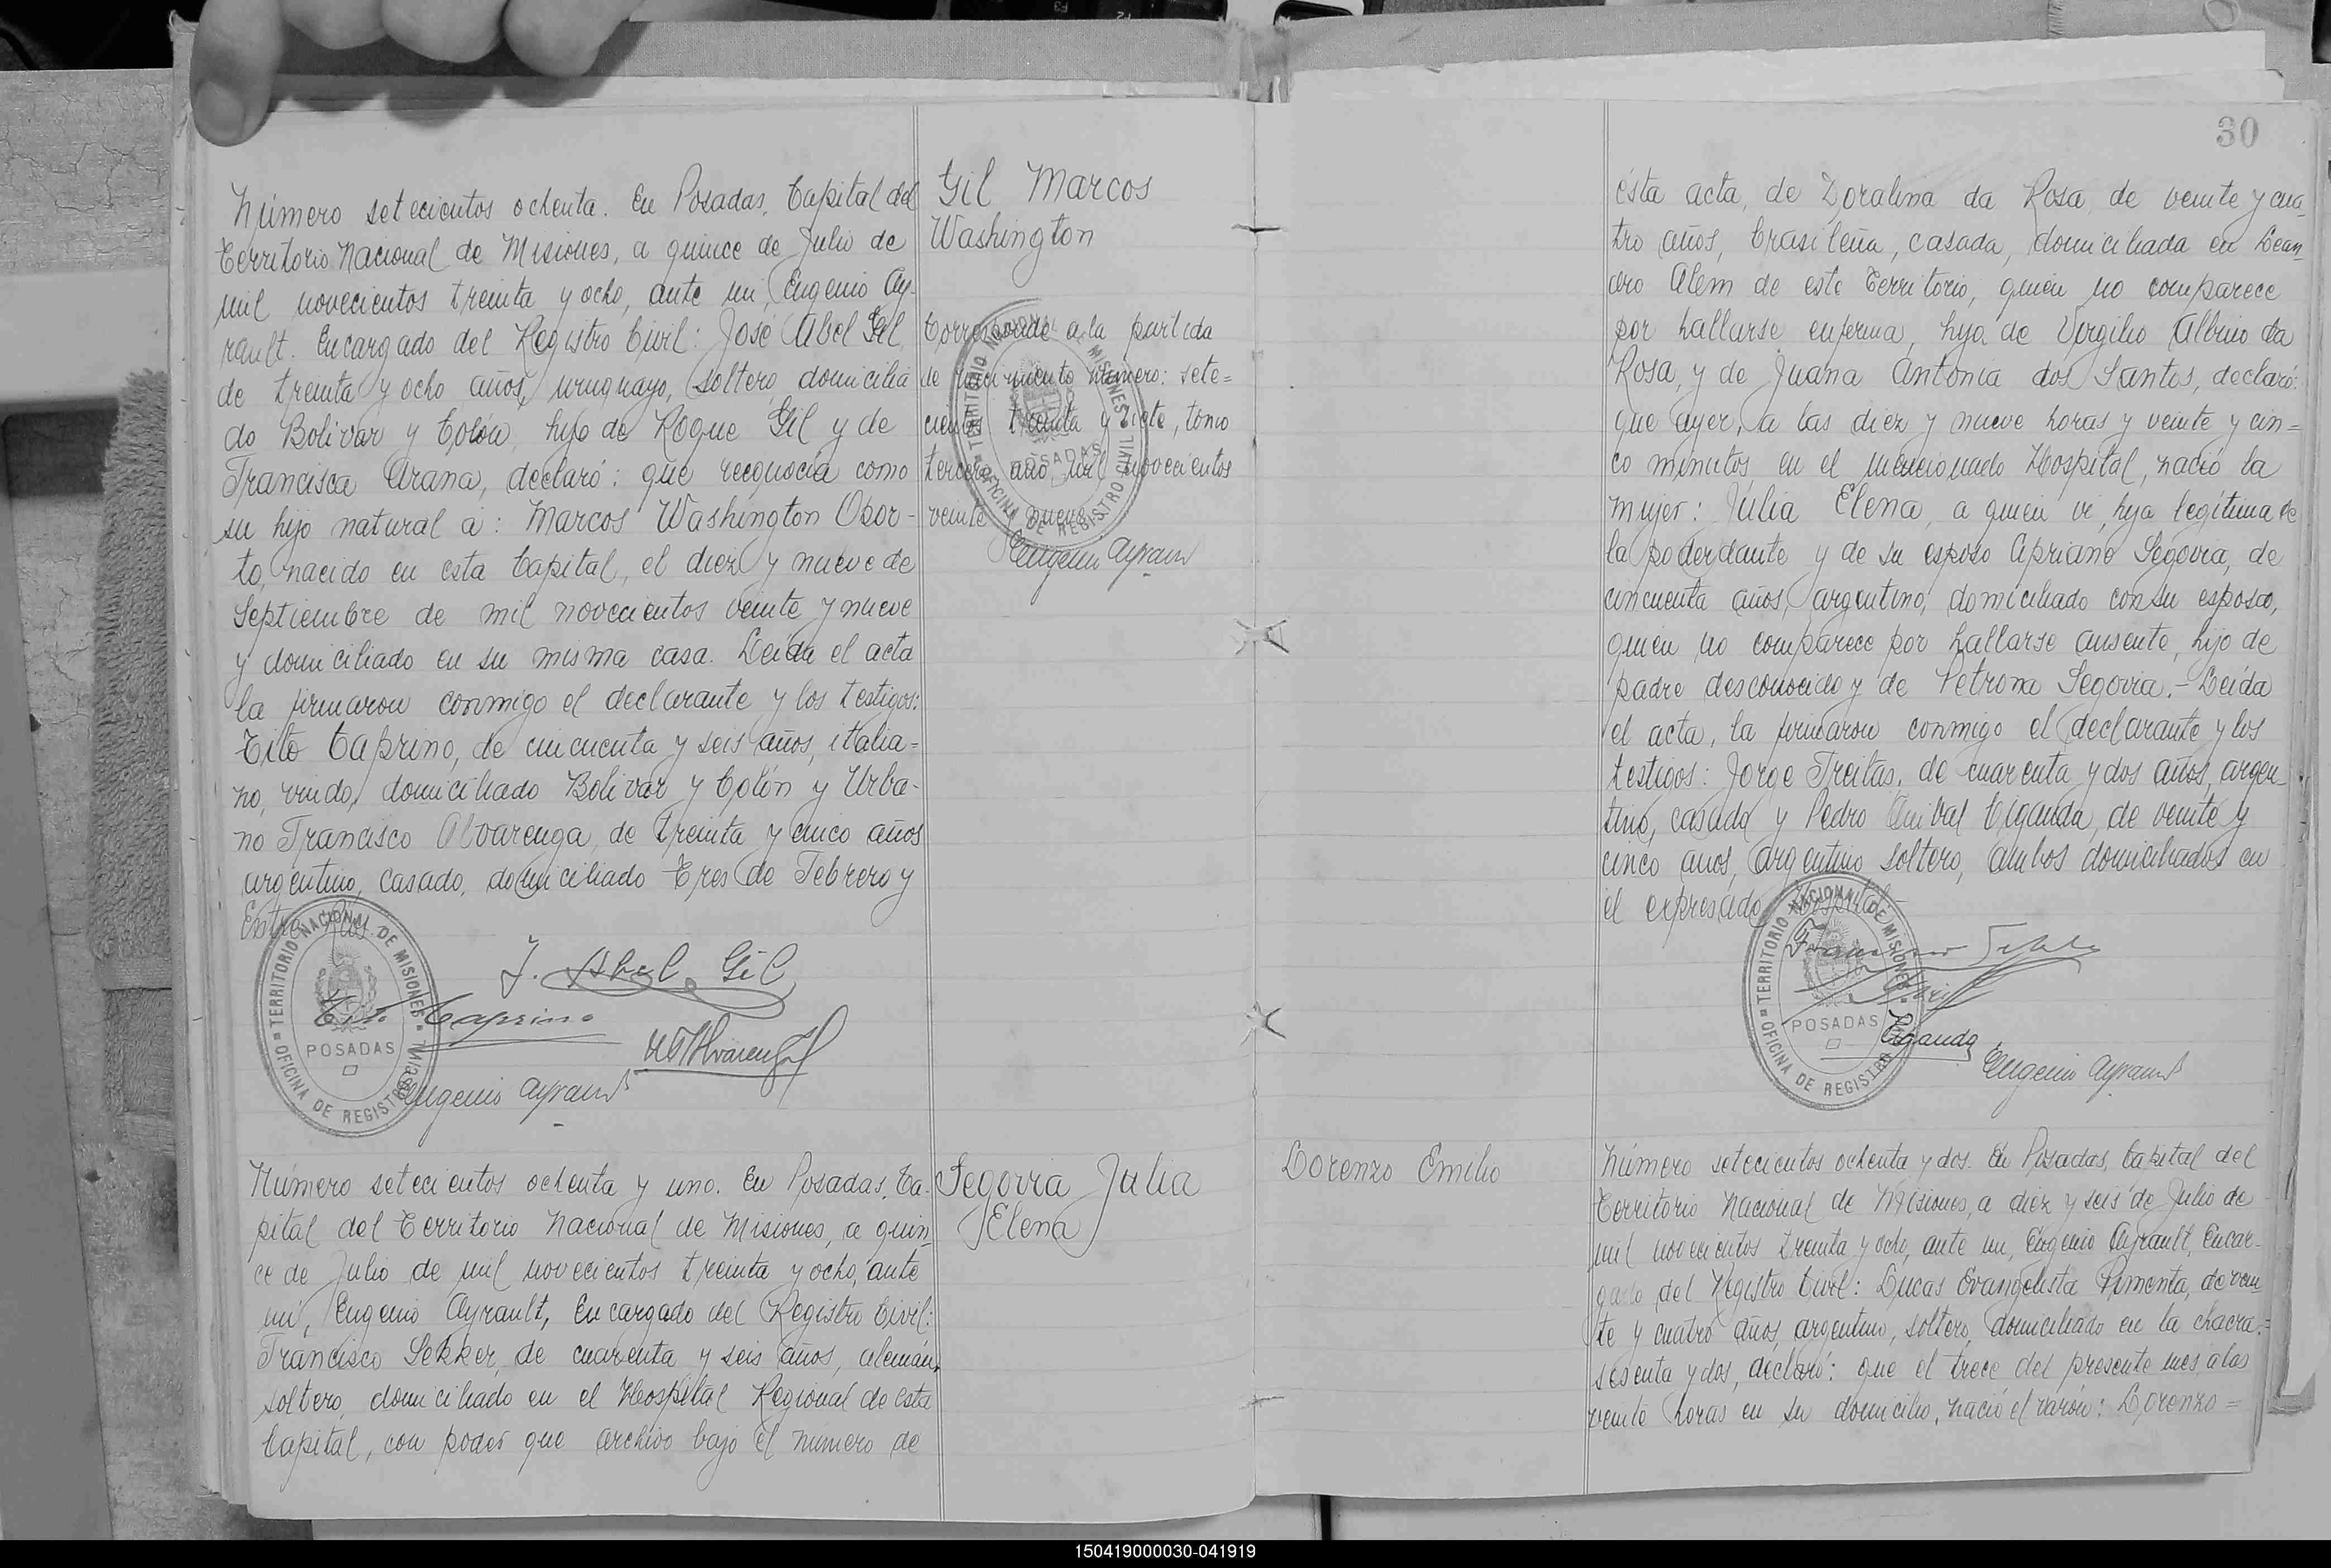 Número setecientos ochenta. En Posadas, Capital del
Territorio Nacional de Misiones, a quince de Julio de
mil novecientos treinta y ocho, ante mi, Eugenio Ay-
rault. Encargado del Registro Civil: José Abel Gil,
de treinta y ocho años, uruguayo, soltero, domicilia
do Bolivar y Colón, hijo de Roque Gil y de
Francisca Arana, declaró: que reconocía como
su hijo natural a: Marcos Washington Obor-
to, nacido en esta Capital, el diez y nueve de
Septiembre de mil novecientos veinte y nueve
y domiciliado en su misma casa. Leída el acta
la firmaron conmigo el declarante y los testigos:
Tito Caprino, de cincuenta y seis años, italia=
no, viudo, domiciliado Bolivar y Colón y Urba-
no Francisco Alvarenga, de treinta y cinco años
argentino, casado, domiciliado Tres de Febrero y
Entre Ríos.
J. Abel Gil
Tito Caprino
U F Alvarenga
Eugenio Ayrault
TERRITORIO NACIONAL DE MISIONES
POSADAS
OFICINA DE REGISTRO CIVIL
Gil Marcos
Washington
Corresponde a la partida
de nacimiento número: sete=
cientos treinta y siete, tomo
tercero año mil novecientos
veinte y nueve
Eugenio Ayrault
TERRITORIO NACIONAL DE MISIONES
POSADAS
OFICINA DE REGISTRO CIVIL
Número setecientos ochenta y uno. En Posadas, Ca-
pital del Territorio Nacional de Misiones, a quin
ce de Julio de mil novecientos treinta y ocho, ante
mi, Eugenio Ayrault, Encargado del Registro Civil:
Francisco Sekker, de cuarenta y seis años, alemán,
soltero, domiciliado en el Hospital Regional de esta
Capital, con poder que archivo bajo el número de
Segovia Julia
Elena
30
ésta acta, de Doralina da Rosa, de veinte y cua
tro años, brasileña, casada, domiciliada en Lean
dro Alem de este Territorio, quien no comparece
por hallarse enferma, hija de Virgilio Albino da
Rosa, y de Juana Antonia dos Santos, declaró:
que ayer, a las diez y nueve horas y veinte y cin=
co minutos, en el mencionado Hospital, nació la
mujer: Julia Elena, a quien vi, hija legítima de
la poderdante y de su esposo Cipriano Segovia, de
cincuenta años, argentino, domiciliado con su esposa,
quien no comparece por hallarse ausente, hijo de
padre desconocido y de Petrona Segovia.- Leída
el acta, la firmaron conmigo el declarante y los
testigos: Jorge Freitas, de cuarenta y dos años, argen
tino, casado y Pedro Anibal Ciganda, de veinte y
cinco años, argentino soltero, ambos domiciliados en
el expresado Hospital.-
TERRITORIO NACIONAL DE MISIONES
POSADAS
OFICINA DE REGISTRO
Ciganda
Eugenio Ayrault
Lorenzo Emilio
Número setecientos ochenta y dos. En Posadas, Capital del
Territorio Nacional de Misiones, a diez y seis de Julio de
mil novecientos treinta y ocho, ante mi, Eugenio Ayrault, Encar-
gado del Registro Civil: Lucas Evangelista Pimenta, de vein
te y cuatro años, argentino, soltero, domiciliado en la chacra=
sesenta y dos, declaró: que el trece del presente mes, a las
veinte horas en su domicilio, nació el varón: Lorenzo=
150419000030-041919